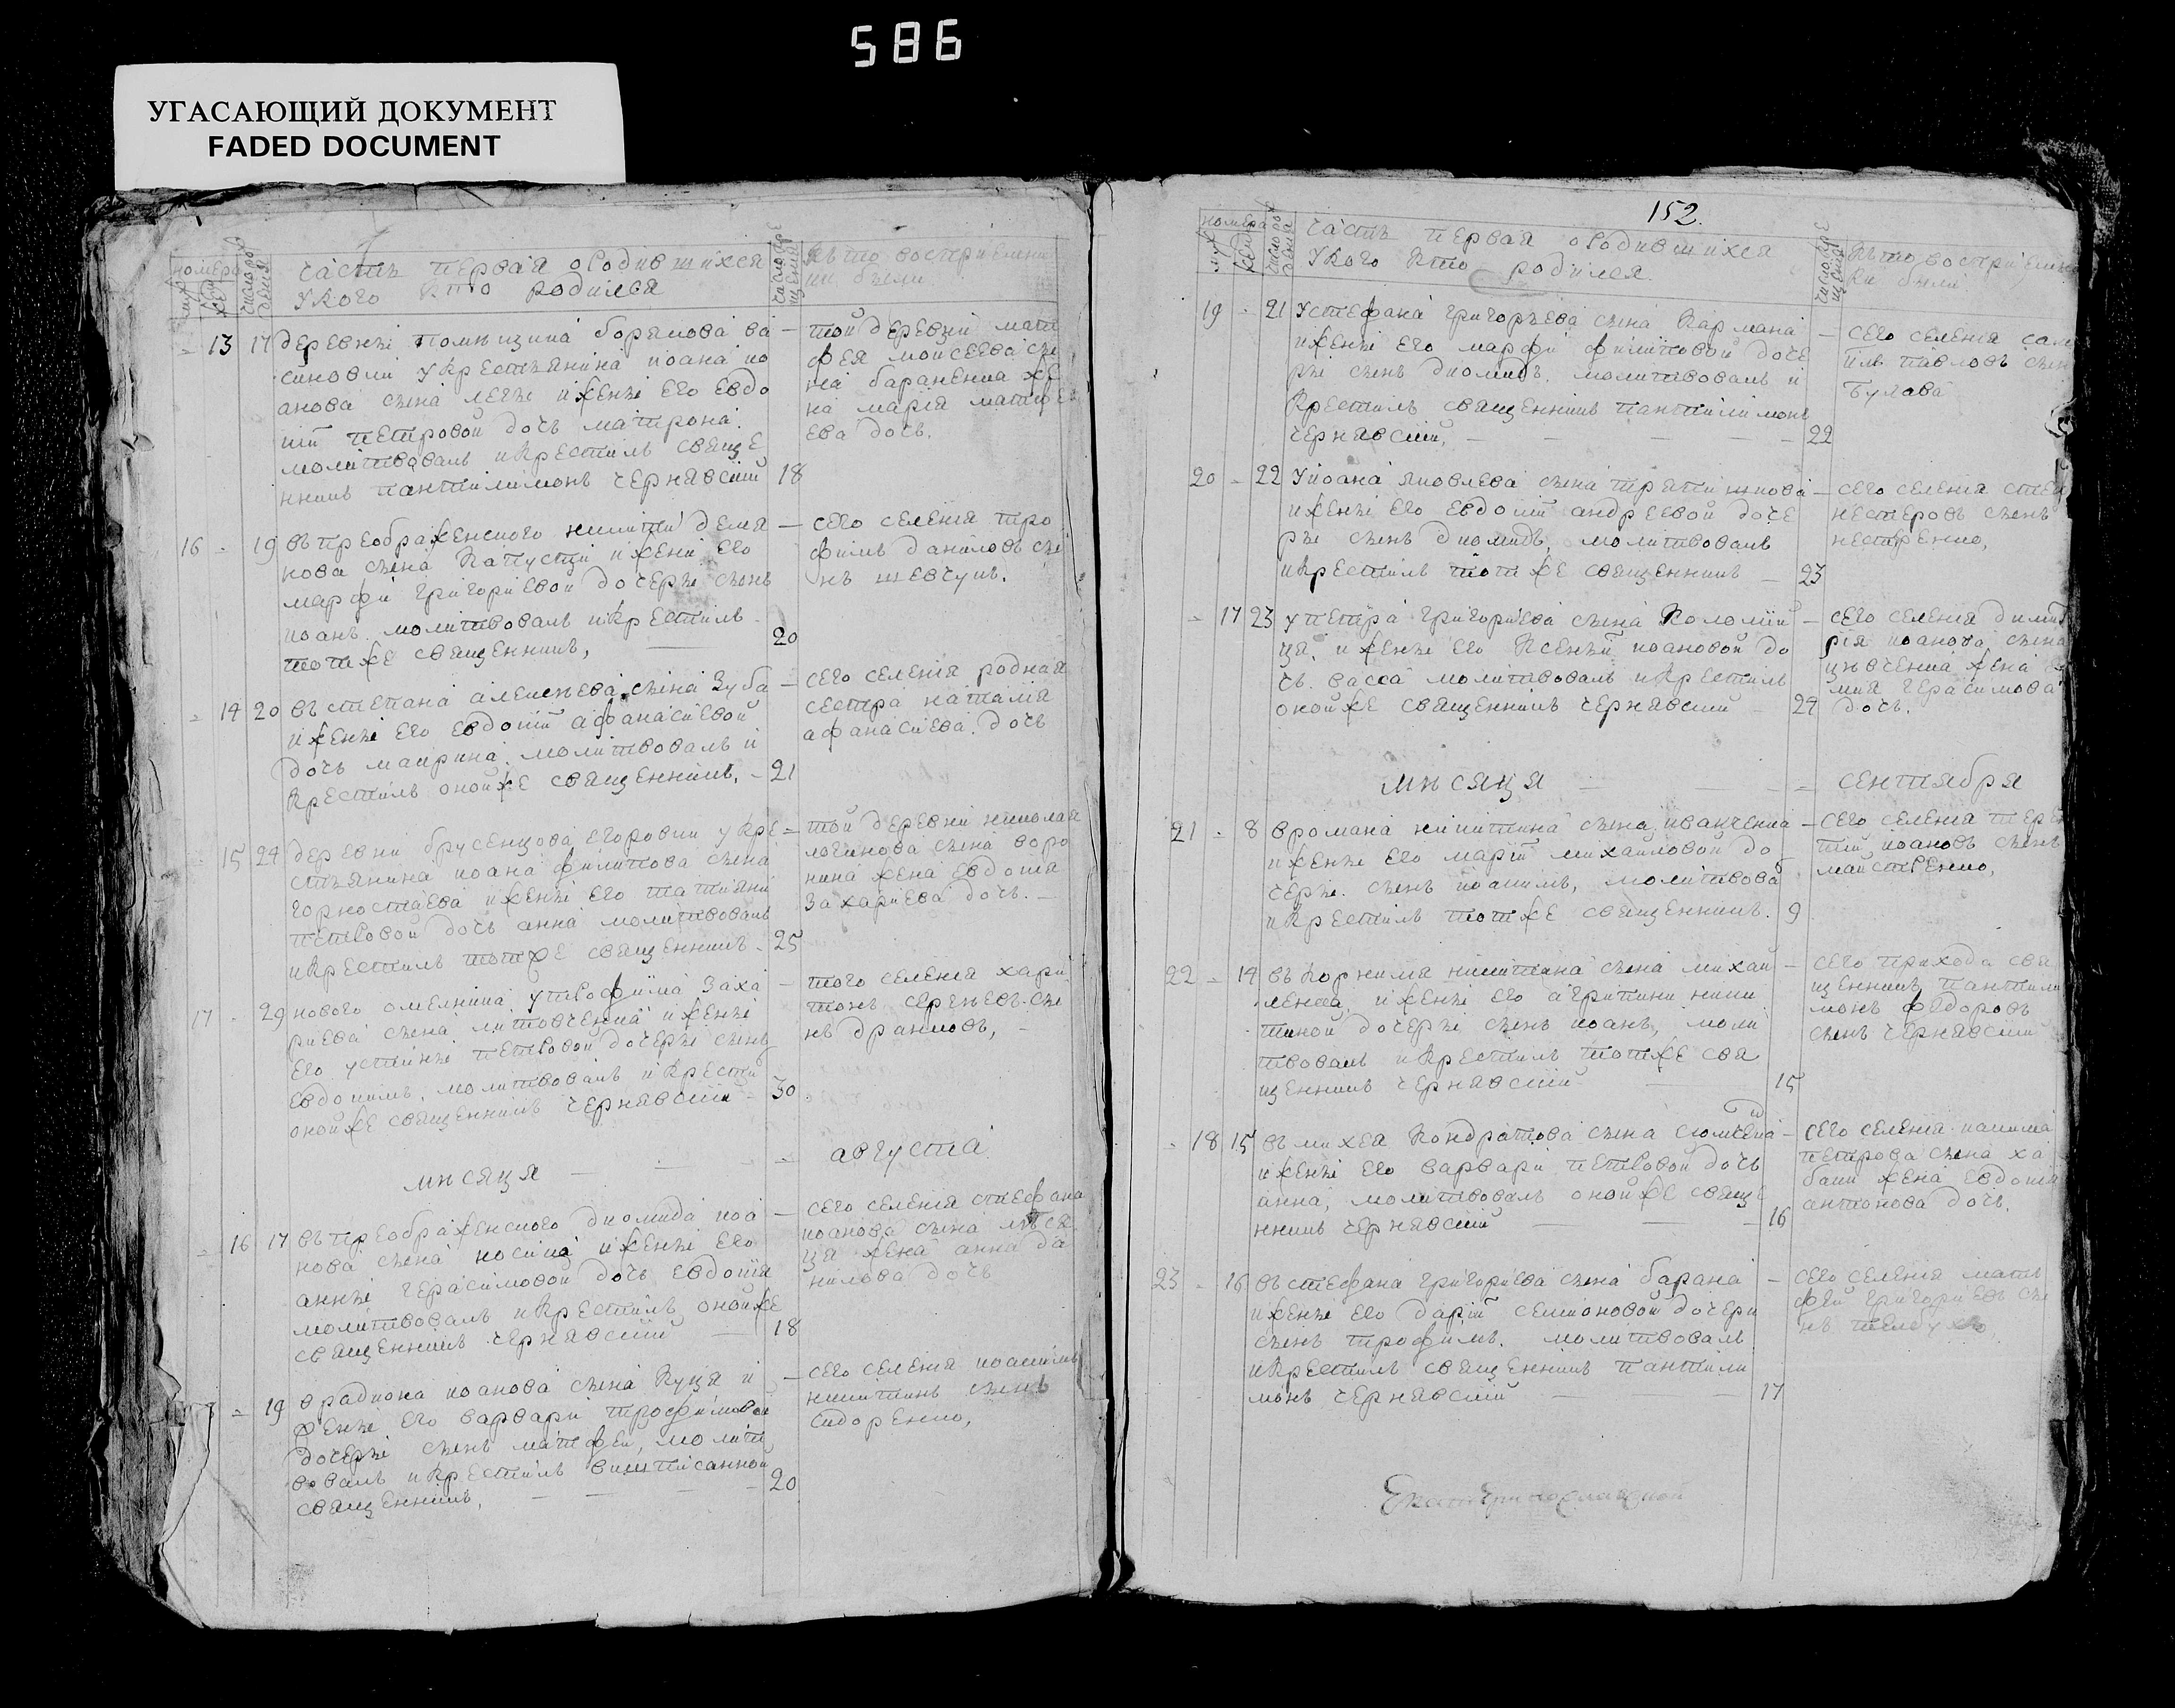 586
УГАСАЮЩИЙ ДОКУМЕНТ
FADED DOCUMENT
номера
часть первая о родившихся
кто восприемни
у кого кто родился
ки были
13 17 деревнѣ помѣщика
синовки у крестьянина иоана ио
анова сына легѣ и женѣ его евдо
кiи петровой дочь матрона.
молитвовалъ и крестилъ свяще
нникъ пантилимонъ чернявскiй 18
той деревнѣ мат
фея моисеева сы
на баранника же
на марiя матфе
ева дочь.
16 - 19 въ преображенского никити демя
нова сына капусти и жени его
марфи григориевой дочерѣ сынъ
иоанъ. молитвовалъ и крестилъ
тотже священникъ, 20
сего селенiя тро
фимъ даниловъ сы
нъ шевчукъ.
14 20 въ степана алексѣева сына зуба
и женѣ его евдокiи афанасиевой
дочь маврина. молитвовалъ и
крестилъ онойже священникъ. - 21
сего селенiя родная
сестра наталiя
афанасиева дочь
15 24 деревни брусенцова егоровки у кре
стьянина иоана филипова сына
горностаева и женѣ его татияни
петровой дочь анна молитвовалъ
и крестилъ тотже священникъ - 25
той деревни николая
логинова сына воро
нина жена евдокiя
захариева дочь. -
17 - 29 нового омелника у трофима заха
риева сына литовченка и женѣ
его устинѣ петровой дочерѣ сынъ
евдокимъ, молитвовалъ и крести
онойже священникъ чернявскiй - 30
того селенiя хари
тонъ сергѣевъ сы
нъ
мѣсяця - августа
16 17 въ преображенского диомида иоа
нова сына косика и женѣ его
аннѣ герасимовой дочь евдокiя
молитвовалъ и крестилъ онойже
священникъ чернявскiй 18
сего селенiя стефана
иоанова сына мѣся
ця жена анна да
нилова дочь
19 в радиона иоанова сына куця и
женѣ его варвари трофимовой
дочерѣ сынъ матфей, молит
вовалъ и крестилъ вишписанной
священникъ, - - - - 20
сего селенiя иоакимъ
никитинъ сынъ
сидоренко,
152.
номера
часть первая о родившихся
кто восприемни
у кого кто родился.
ки были
19 - 21 у стефана григорьева сына кармана
и женѣ его марфи филиповой доче
рѣ сынъ диомидъ. молитвовалъ и
крестилъ священникъ пантилимонъ
чернявскiй, - - - - 22
сего селенiя сам
iилъ павловъ сын
булава
20 - 22 у иоана яковлева сына
и женѣ его евдокiи андреевой доче
рѣ сынъ диомидъ, молитвовалъ
и крестилъ тотже священникъ - 23
сего селенiя стеф
нестеровъ сынъ
нестеренко,
17 23 у петра григориева сына коломiй
ця, и женѣ его ксенѣи иоановой до
чь васса молитвовалъ и крестилъ
онойже священникъ чернявскiй - 24
сего селенiя димит
рiя иоанова сына
жена
мия герасимова
дочь.
мѣсяця - - - сентября
21 - 8 в романа никитина сына ивахненка
и женѣ его марiи михайловой до
черѣ. сынъ иоакимъ, молитвова
и крестилъ тотже священникъ. 9
сего селенiя терен
тiй иоановъ сынъ
майстренко,
22 - 14 въ корнилия никитина сына михай
ленка, и женѣ его агрипини ники
тиной дочерѣ сынъ иоанъ, моли
твовалъ и крестилъ тотже свя
щенникъ чернявскiй 15
сего прихода свя
щенникъ пантили
монъ федоровъ
сынъ чернявскiй
18 15 въ михея кондратова сына
и женѣ его варвари петровой дочь
анна, молитвовалъ онойже свяще
нникъ чернявскiй - - - 16
сего селенiя якима
петрова сына ха
бани жена евдокiя
антонова дочь.
23 - 16 въ стефана григориева сына барана
и женѣ его дарiи семионовой дочери
сынъ трофимъ. молитвовалъ
и крестилъ священникъ пантили
монъ чернявскiй - - 17
сего селенiя мат
фей григориевъ сы
нъ
Екатеринославской